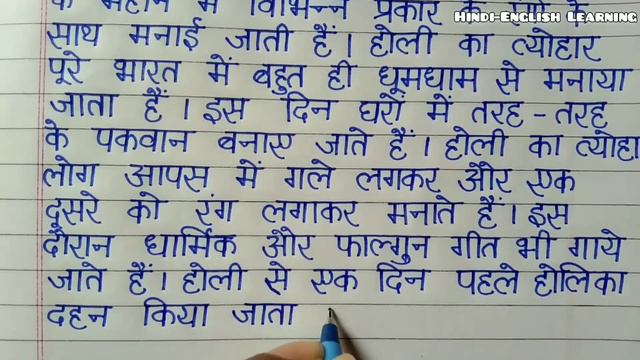 Hindi-English Learning
के महीने में विभिन्न प्रकार के रंगों के
साथ मनाई जाती हैं। होली का त्योहार
पूरे भारत में बहुत ही धूमधाम से मनाया
जाता हैं। इस दिन घरों में तरह - तरह
के पकवान बनाए जाते हैं। होली का त्योहा
लोग आपस में गले लगकर और एक
दूसरे को रंग लगाकर मनाते हैं। इस
दौरान धार्मिक और फाल्गुन गीत भी गाये
जाते हैं। होली से एक दिन पहले होलिका
दहन किया जाता